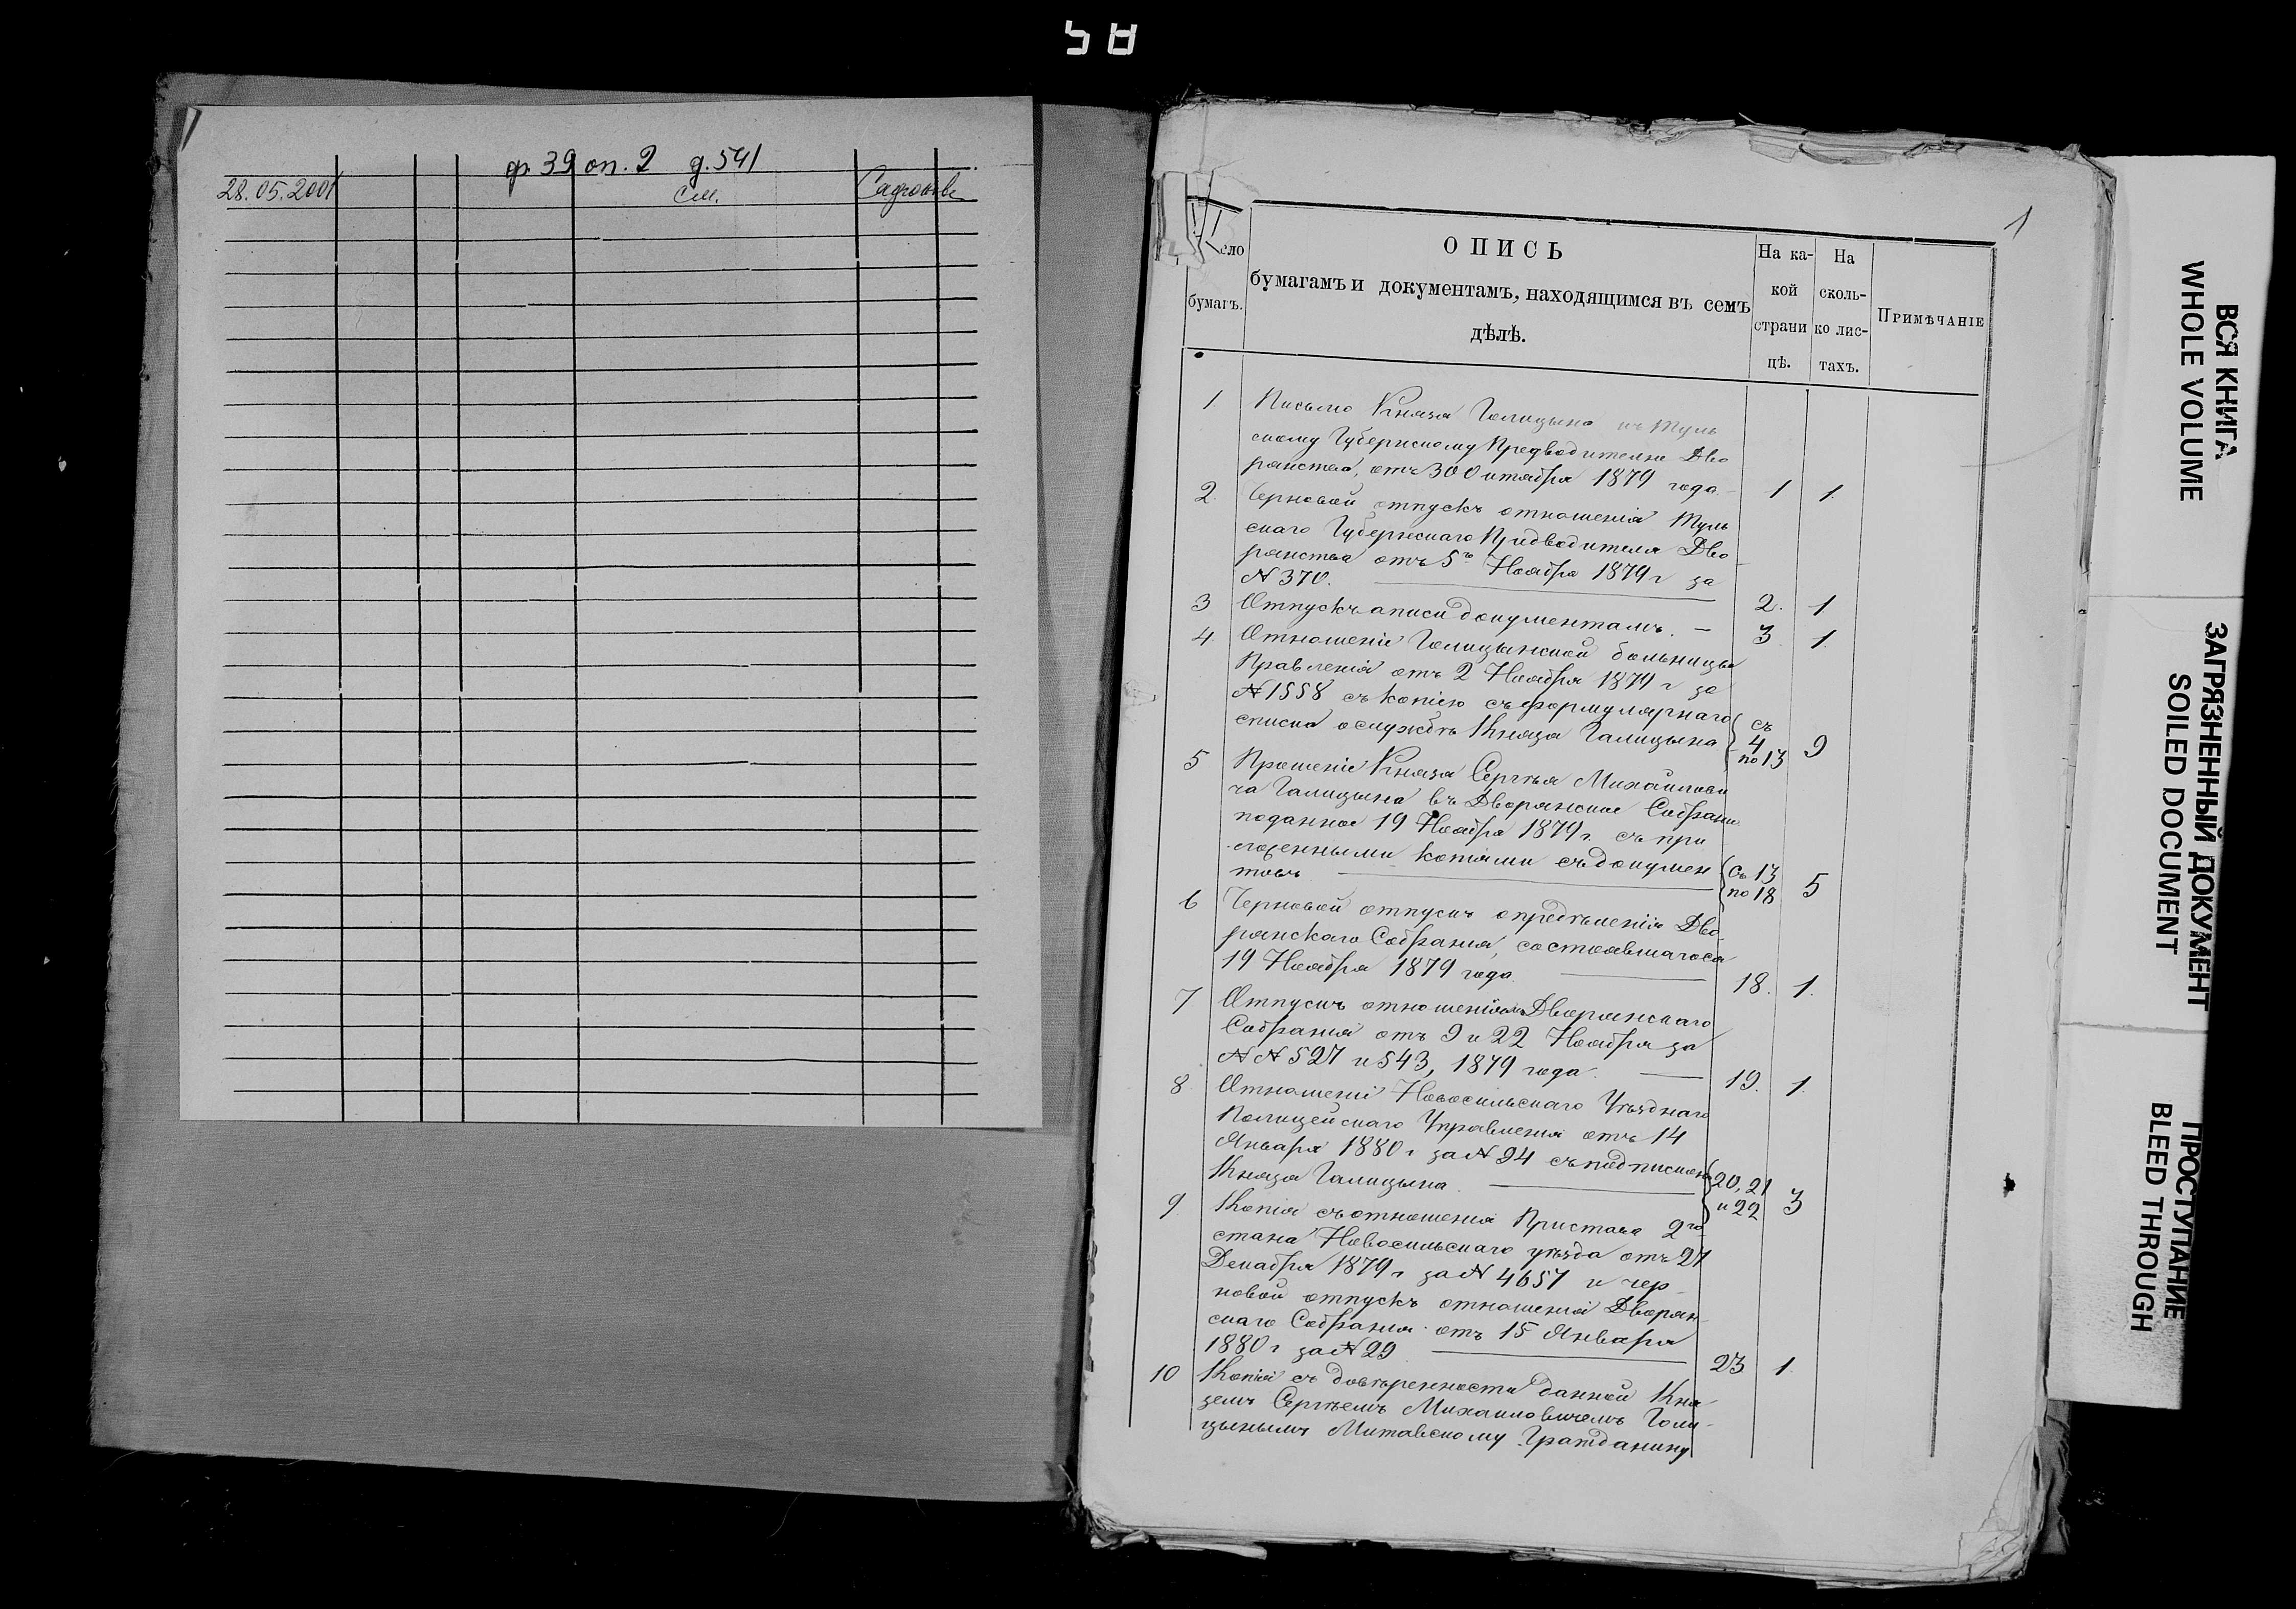 ф. 39 оп. 2 д. 541
28.05.2001 см.
1
ОПИСЬ
бумагамъ и документамъ, находящимся въ семъ
дѣлѣ.
бумагъ.
На ка-
кой
страни
цѣ.
На
сколь-
ко лис-
тахъ.
Примѣчаніе
1 Письмо Князя Голицына къ Туль
скому Губернскому Предводителю Дво
рянства, отъ 30 Октября 1879 года 1 1.
2. Черновой отпускъ отношенія Туль
скаго Губернскаго Предводителя Дво
рянства отъ 5го Ноября 1879 г за
№ 370. 2. 1
3 Отпускъ описи документамъ. 3 1.
4. Отношеніе Голицынской больницы
Правленія отъ 2 Ноября 1879 г за
№ 1558 съ копіею съ формулярнаго
списка о службѣ Князя Галицына съ 4 по 13 9
5 Прошеніе Князя Сергѣя Михайлови
ча Галицына въ Дворянское Собраніе
поданное 19 Ноября 1879 г. съ при
ложенными копіями съ докумен
товъ Съ 13 по 18 5
6 Черновой отпускъ опредѣленія Дво
рянскаго Собранія, состоявшагося
19 Ноября 1879 года. 18. 1.
7 Отпускъ отношеніямъ Дворянскаго
Собранія отъ 9 и 22 Ноября за
№ № 527 и 543, 1879 года. 19. 1.
8 Отношеніе Новосильскаго Уѣзднаго
Полицейскаго Управленія отъ 14
Января 1880 г за № 94 съ подпискою
Князя Галицына 20, 21 и 22 3
9 Копія съ отношенія Пристава 2го
стана Новосильскаго уѣзда отъ 27
Декабря 1879 г за № 4657 и чер
новой отпускъ отношенія Дворян
скаго Собранія отъ 15 Января
1880 г за № 29 23 1
10 Копія съ довѣренности данной Кня
земъ Сергѣемъ Михайловичемъ Голи
цынымъ Митавскому Гражданину
ВСЯ КНИГА
WHOLE VOLUME
ЗАГРЯЗНЕННЫЙ ДОКУМЕНТ
SOILED DOCUMENT
ПРОСТУПАНИЕ
BLEED THROUGH